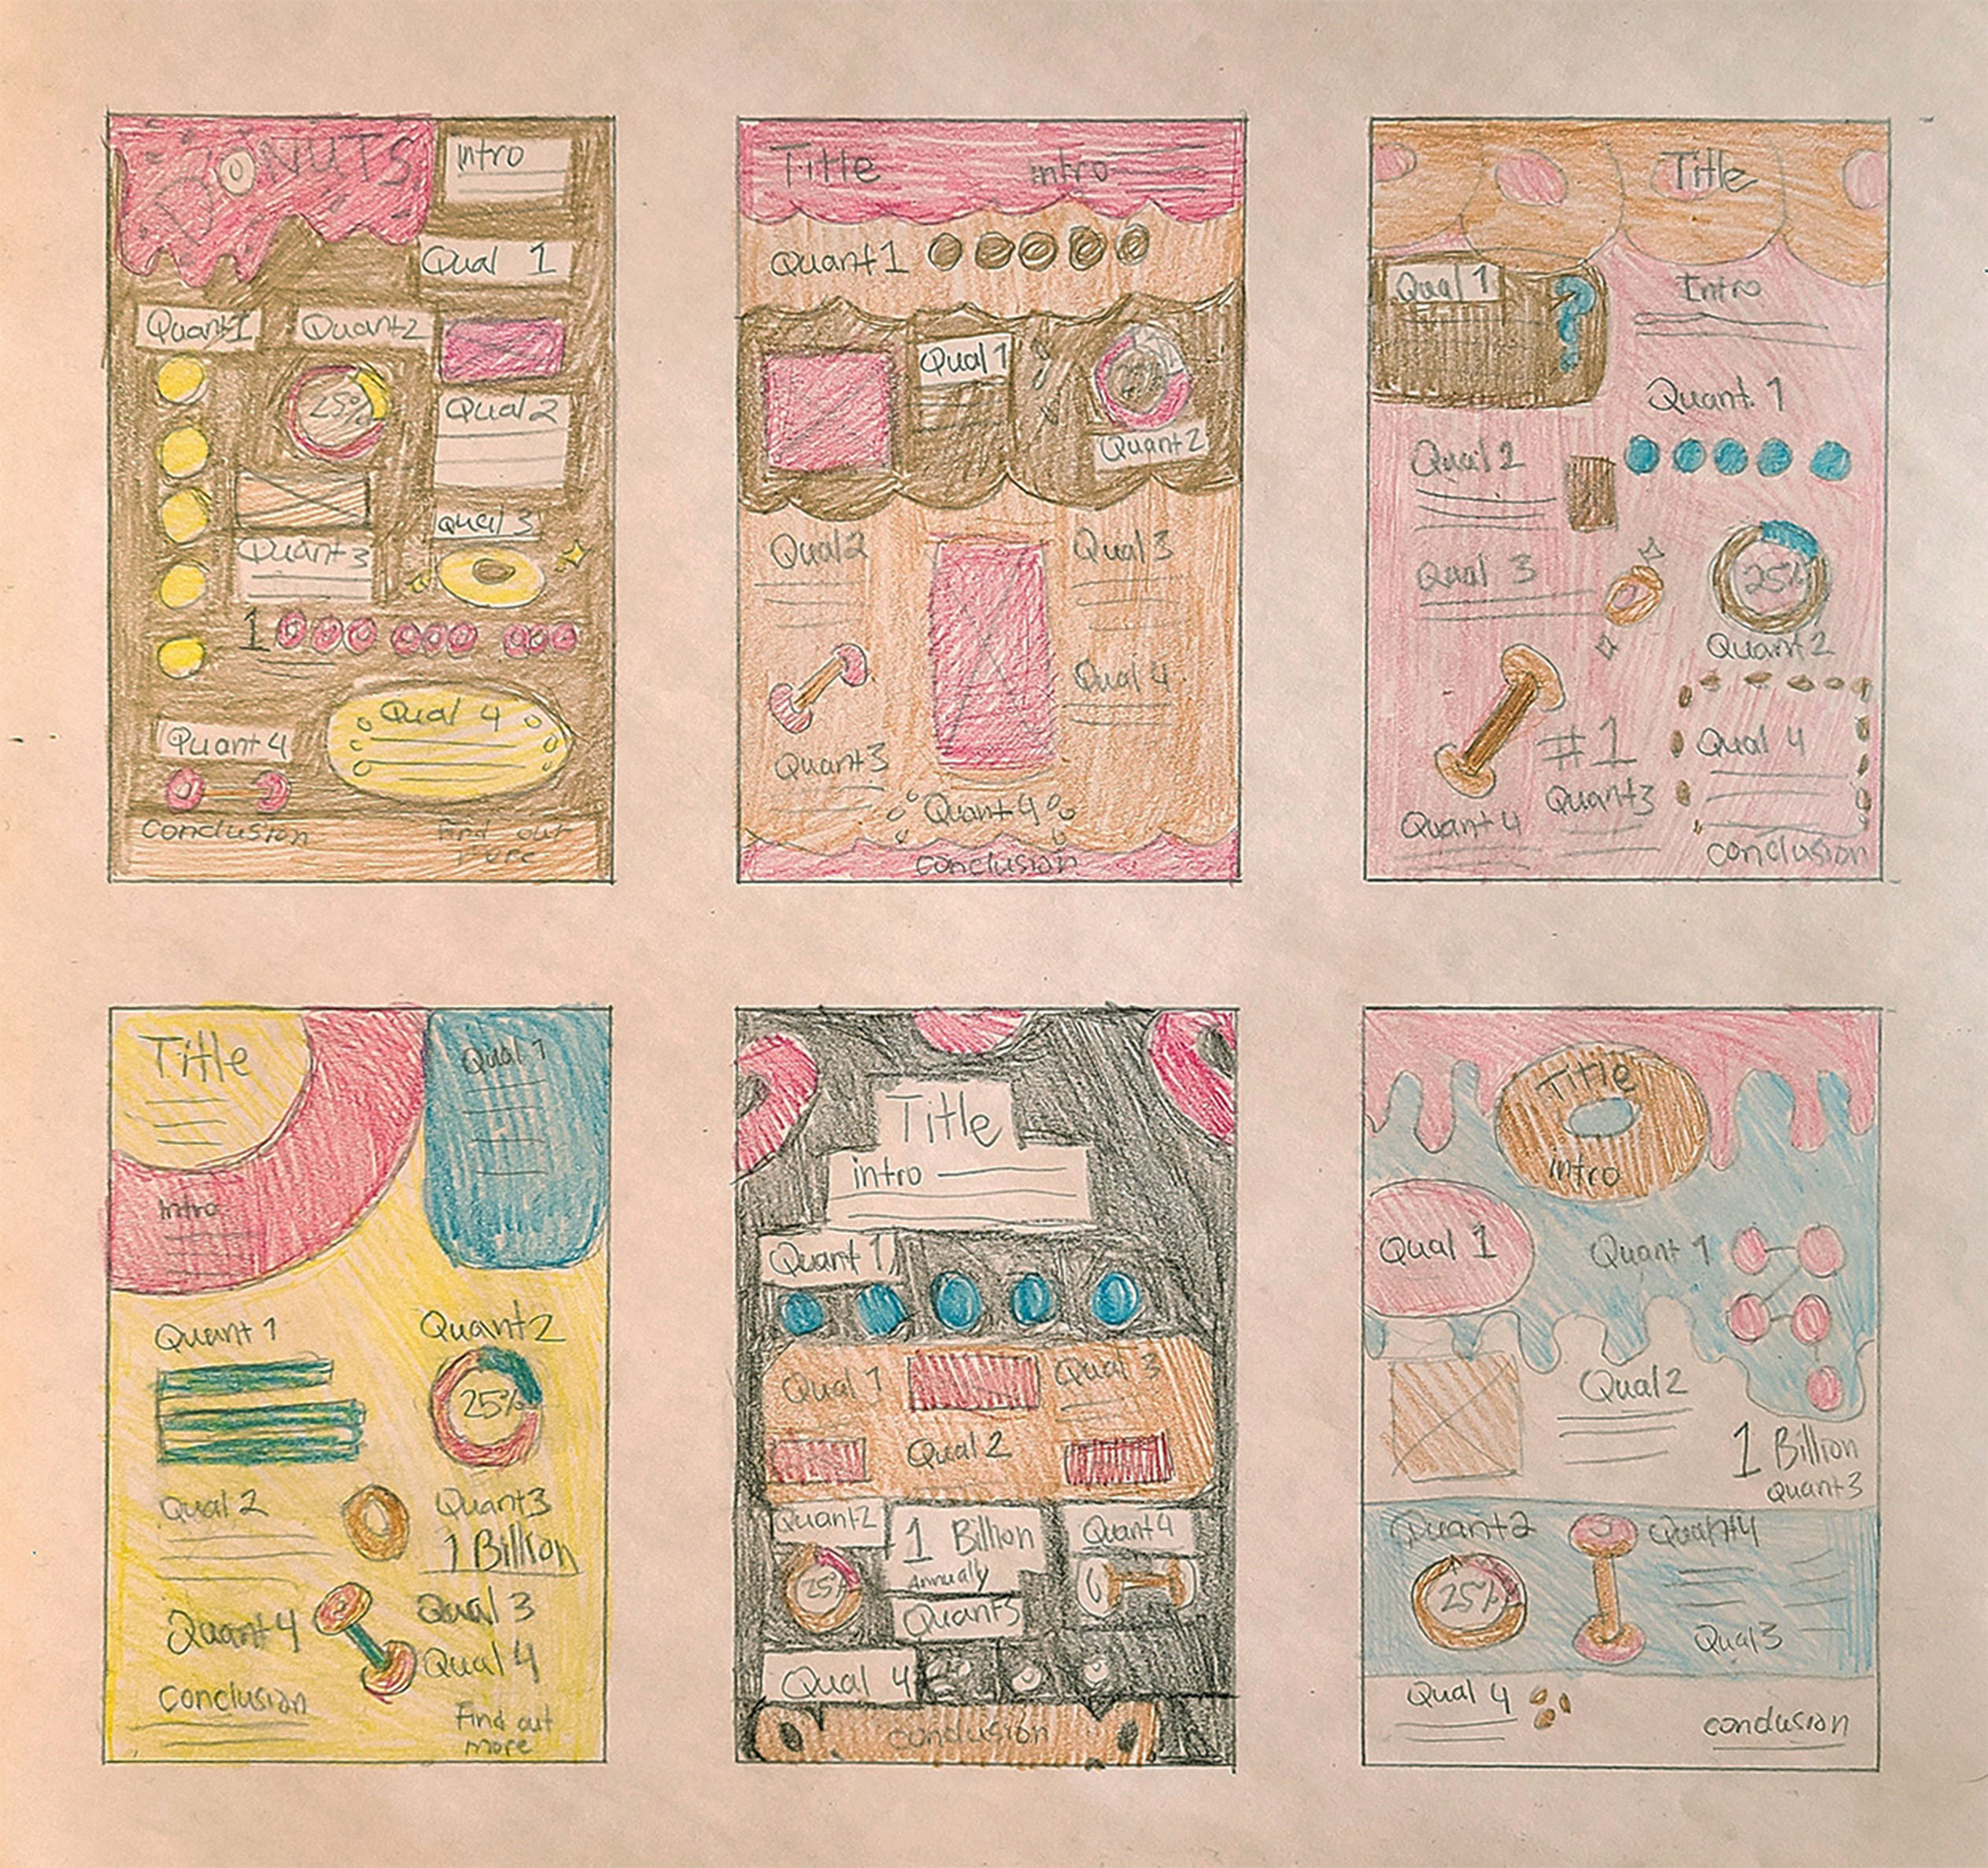 DONUTS
Intro
Qual 1
Quant 1
Quant 2
25%
Qual 2
Quant 3
Qual 3
1
Quant 4
Qual 4
Conclusion
Find out
more
Title
intro
Quant 1
Qual 1
25%
Quant 2
Qual 2
Qual 3
Qual 4
Quant 3
Quant 4
conclusion
Title
Qual 1
?
Intro
Quant 1
Qual 2
Qual 3
25%
Quant 2
#1
Qual 4
Quant 3
Quant 4
conclusion
Title
Qual 1
Intro
Quant 1
Quant 2
25%
Qual 2
Quant 3
1 Billion
Quant 4
Qual 3
Qual 4
Conclusion
Find out
more
Title
intro
Quant 1
Qual 1
Qual 3
Qual 2
Quant 2
1 Billion
Annually
Quant 4
25%
Quant 3
Qual 4
conclusion
Title
intro
Qual 1
Quant 1
Qual 2
1 Billion
Quant 3
Quant 2
Quant 4
25%
Qual 3
Qual 4
conclusion